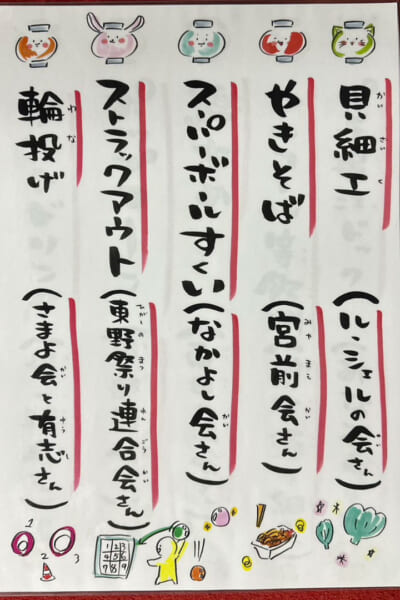 貝細工(ルンシェルの会さん)
やきそば(宮前会さん)
スーパーボールすくい(なかよし会さん)
ストラックアウト(東野祭り連合会さん)
輪投げ(さまよ会と有志さん)
123
456
789
1
2
3